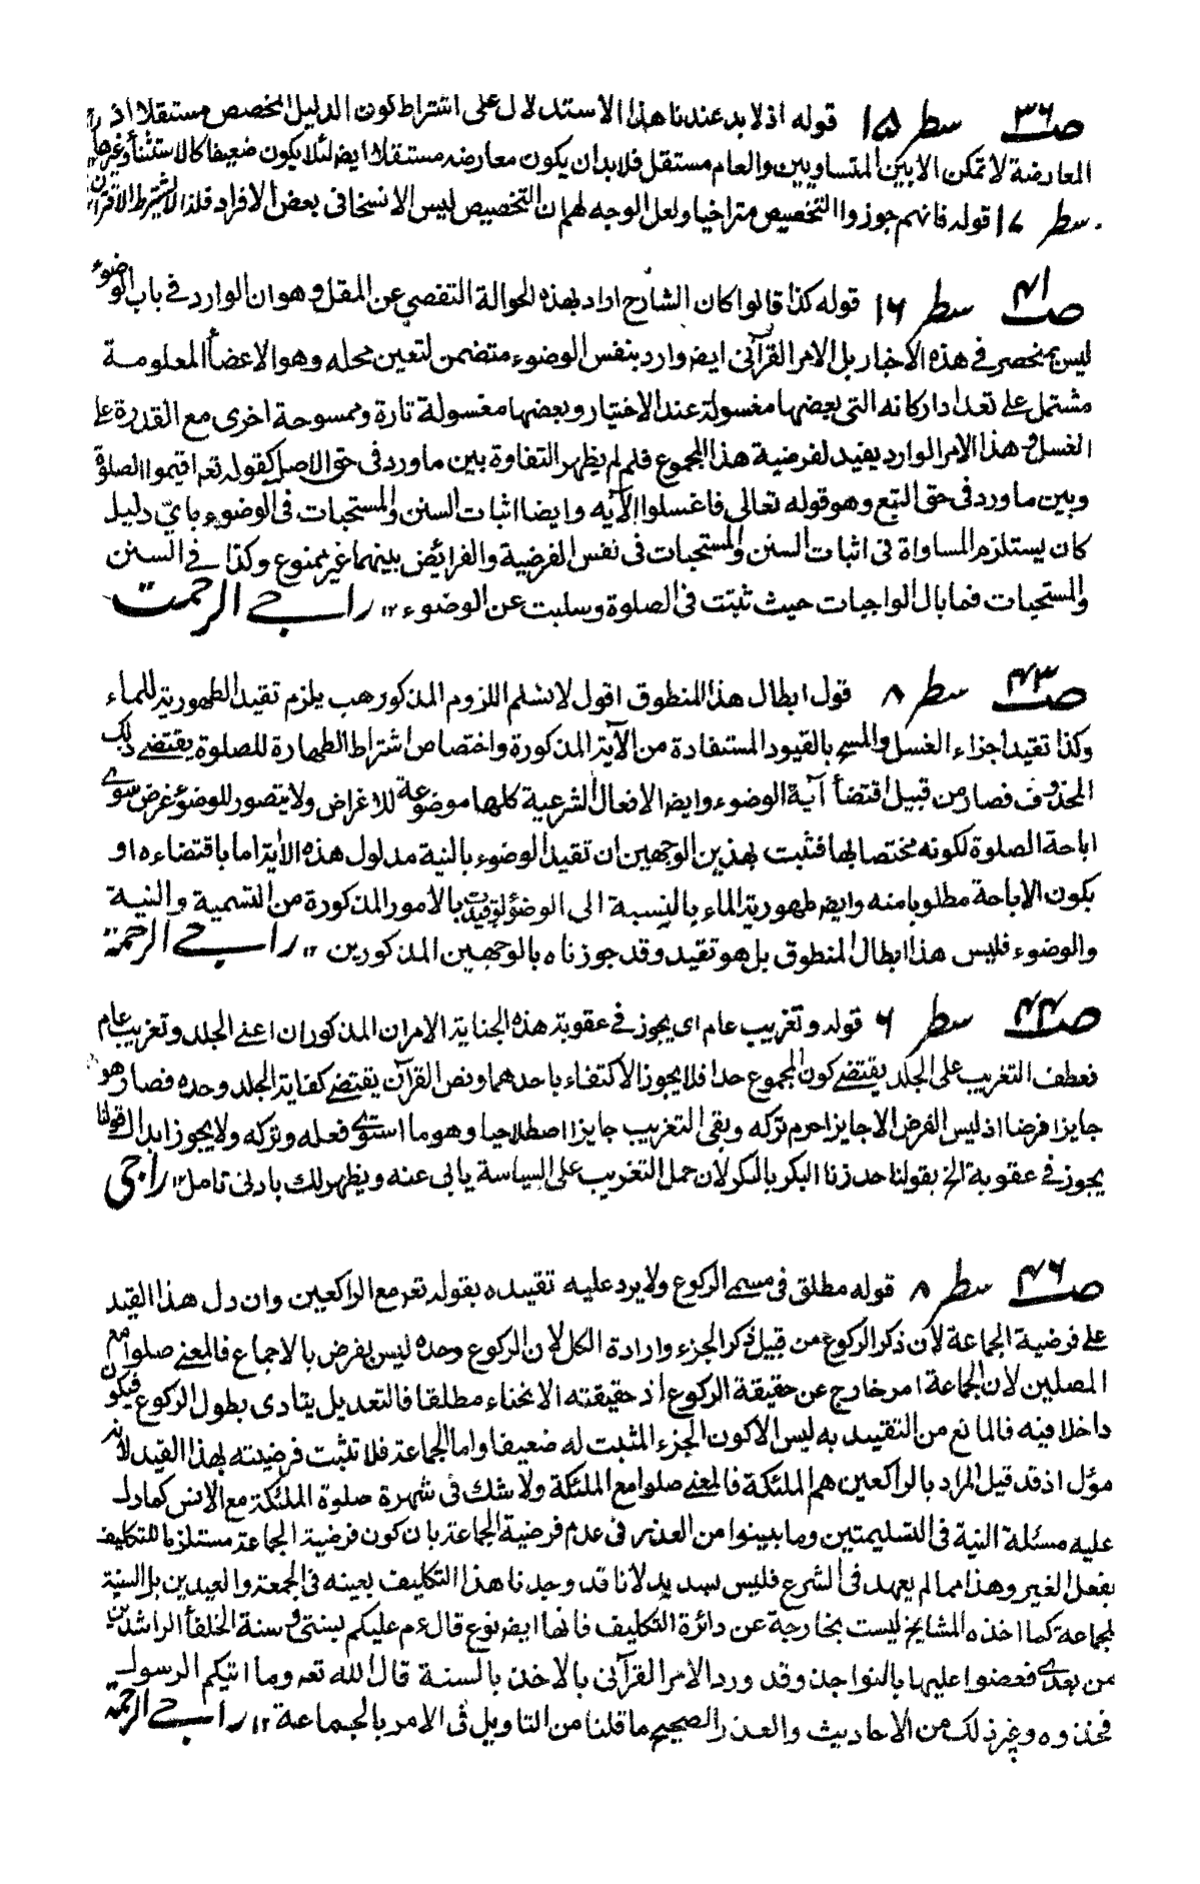 صـ ٣٦ سطر ١٥ قوله اذ لا بد عندنا هذا الاستدلال على اشتراط كون الدليل المخصص مستقلا اذ
المعارضة لا تمكن الا بين المتساويين والعام مستقل فلا بد ان يكون معارضه مستقلا ايضا لئلا يكون ضعيفا كالاستثناء وغيرها
سطر ١٧ قوله فانهم جوزوا التخصيص متراخيا ولعل الوجه لهم ان التخصيص ليس الا نسخا فى بعض الافراد فلذا لا يشترط الاقتران
صـ ٤١ سطر ١٦ قوله كذا قالوا كان الشارح اراد بهذه الحوالة التفصى عن المقل وهو ان الوارد فے باب الوضوء
ليس بمنحصر فے هذه الاخبار بل الامر القرآنى ايضا وارد بنفس الوضوء متضمن لتعين محله وهو الاعضأ المعلومة
مشتمل على تعداد اركانه التى بعضها مغسولة عند الاختيار وبعضها مغسولة تارة وممسوحة اخرى مع القدرة على
الغسل وهذا الامر الوارد يفيد لفرضية هذا المجموع فلم لم يظهر التفاوة بين ما ورد فى حق الاصل كقوله تعه اقيموا الصلوة
وبين ما ورد فى حق التبع وهو قوله تعالى فاغسلوا الآيه وايضا اثبات السنن والمستحبات فى الوضوء باىّ دليل
كان يستلزم المساواة فى اثبات السنن والمستحبات فى نفس الفرضية والفرائض بينهما غير ممنوع وكذا فے السنن
والمستحبات فما بال الواجبات حيث ثبتت فى الصلوة وسلبت عن الوضوء ١٢ راجے الرحمت
صـ ٤٣ سطر ٨ قول ابطال هذا المنطوق اقول لا نسلم اللزوم المذكور هب يلزم تقيد الطهورية للماء
وكذا تقيد اجزاء الغسل والمسح بالقيود المستفادة من الآية المذكورة واختصاص اشتراط الطهارة للصلوة يقتضے ذلك
المحذوف فصار من قبيل اقتضأ آية الوضوء وايضا الافعال الشرعية كلها موضوعة للاغراض ولا يتصور للوضوء غرض سوے
اباحة الصلوة لكونه مختصا بها فثبت بهذين الوجهين ان تقيد الوضوء بالنية مدلول هذه الآية اما باقتضاءه او
بكون الاباحة مطلوبا منه وايضا طهورية الماء بالنسبة الى الوضوء لو قيدت بالامور المذكورة من التسمية والنية
والوضوء فليس هذا ابطال المنطوق بل هو تقيد وقد جوزناه بالوجهين المذكورين ١٢ راجے الرحمة
صـ ٤٤ سطر ٦ قوله وتغريب عام اى يجوز فے عقوبة هذه الجناية الامران المذكوران اعنے الجلد وتغريب عام
فعطف التغريب على الجلد يقتضے كون المجموع حدا فلا يجوز الاكتفاء باحدهما ونص القرآن يقتضے كفاية الجلد وحده فصار هو
جايزا فرضا اذ ليس الفرض الا جايزا حرم تركه وبقى التغريب جايزا اصطلاحيا وهو ما استوے فعله وتركه ولا يجوز ابدال قولنا
يجوز فے عقوبة الخ بقولنا حد زنا البكر بالبكر لان حمل التغريب على السياسة يابى عنه ويظهر لك بادنى تامل ١٢ راجى
صـ ٤٦ سطر ٨ قوله مطلق فى مسمى الركوع ولا يرد عليه تقييده بقوله تعه مع الراكعين وان دل هذا القيد
على فرضية الجماعة لان ذكر الركوع من قبيل ذكر الجزء وارادة الكل لان الركوع وحده ليس بفرض بالاجماع فالمعنے صلوا مع
المصلين لان الجماعة امر خارج عن حقيقة الركوع اذ حقيقته الانحناء مطلقا فالتعديل يتادى بطول الركوع فيكون
داخلا فيه فالمانع من التقييد به ليس الا كون الجزء المثبت له ضعيفا واما الجماعة فلا تثبت فرضيته بهذا القيد لانه
مؤل اذ قد قيل المراد بالراكعين هم الملئكة فالمعنے صلوا مع الملئكة ولا شك فى شهرة صلوة الملئكة مع الانس كما دل
عليه مسئلة النية فى التسليمتين وما بينوا من العذر فى عدم فرضية الجماعة بان كون فرضية الجماعة مستلزما للتكليف
بفعل الغير وهذا مما لم يعهد فى الشرع فليس بسديد لانا قد وجدنا هذا التكليف بعينه فى الجمعة والعيدين بل السنية
لجماعة كما اخذه المشايخ ليست بخارجة عن دائرة التكليف فانها ايضا نوع قال ءم عليكم بسنتى وسنة الخلفأ الراشدين
من بعدے فعضوا عليها بالنواجذ وقد ورد الامر القرآنى بالاخذ بالسنة قال الله تعه وما اتيكم الرسول
فخذوه وغير ذلك من الاحاديث والعذر الصحيح ما قلنا من التاويل فى الامر بالجماعة ١٢ راجے الرحمة